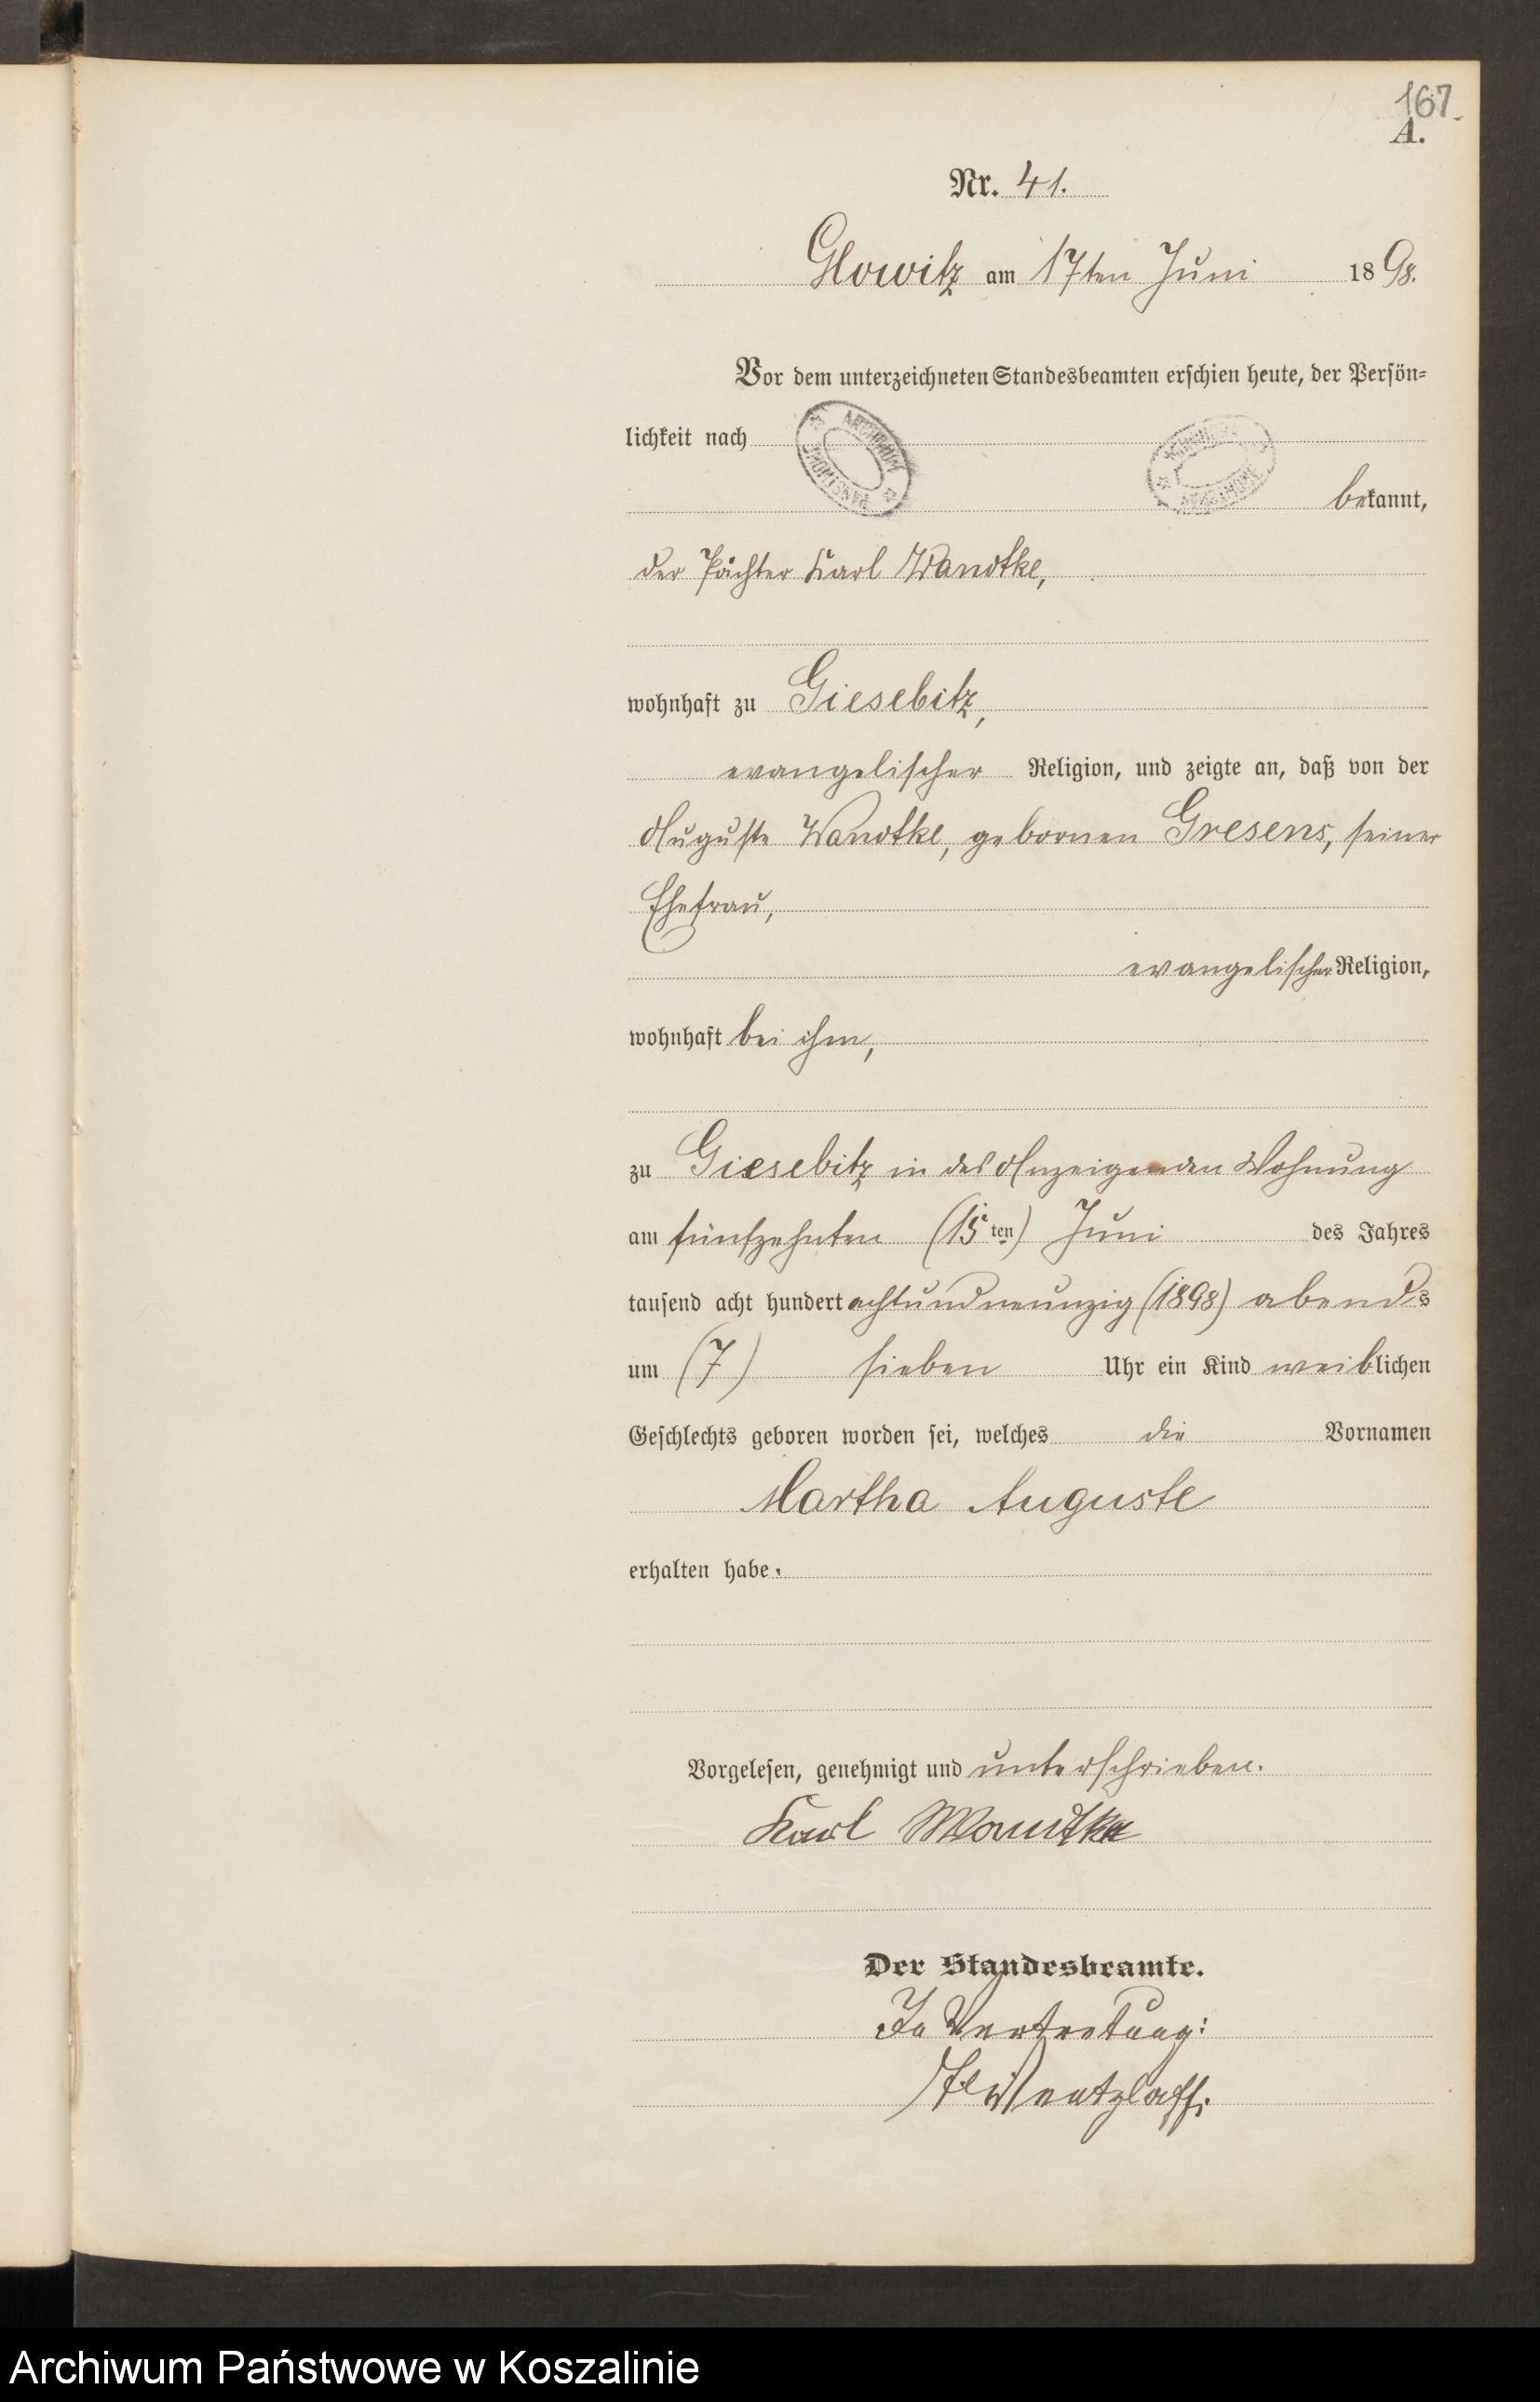 167.
A.
Nr. 41.
Glowitz am 17ten Juni 1898.
Vor dem unterzeichneten Standesbeamten erschien heute, der Persön-
lichkeit nach
ARCHIWUM PAŃSTWOWE
bekannt,
der Pächter Karl Wandtke,
wohnhaft zu Giesebitz,
evangelischer Religion, und zeigte an, daß von der
Auguste Wandtke, gebornen Gresens, seiner
Ehefrau,
evangelischer Religion,
wohnhaft bei ihm,
zu Giesebitz in des Anzeigenden Wohnung
am fünfzehnten (15ten) Juni des Jahres
tausend acht hundert achtundneunzig (1898) abends
um (7) sieben Uhr ein Kind weiblichen
Geschlechts geboren worden sei, welches die Vornamen
Martha Auguste
erhalten habe.
Vorgelesen, genehmigt und unterschrieben.
Karl Wandtke
Der Standesbeamte.
In Vertretung:
Wentzlaff.
Archiwum Państwowe w Koszalinie